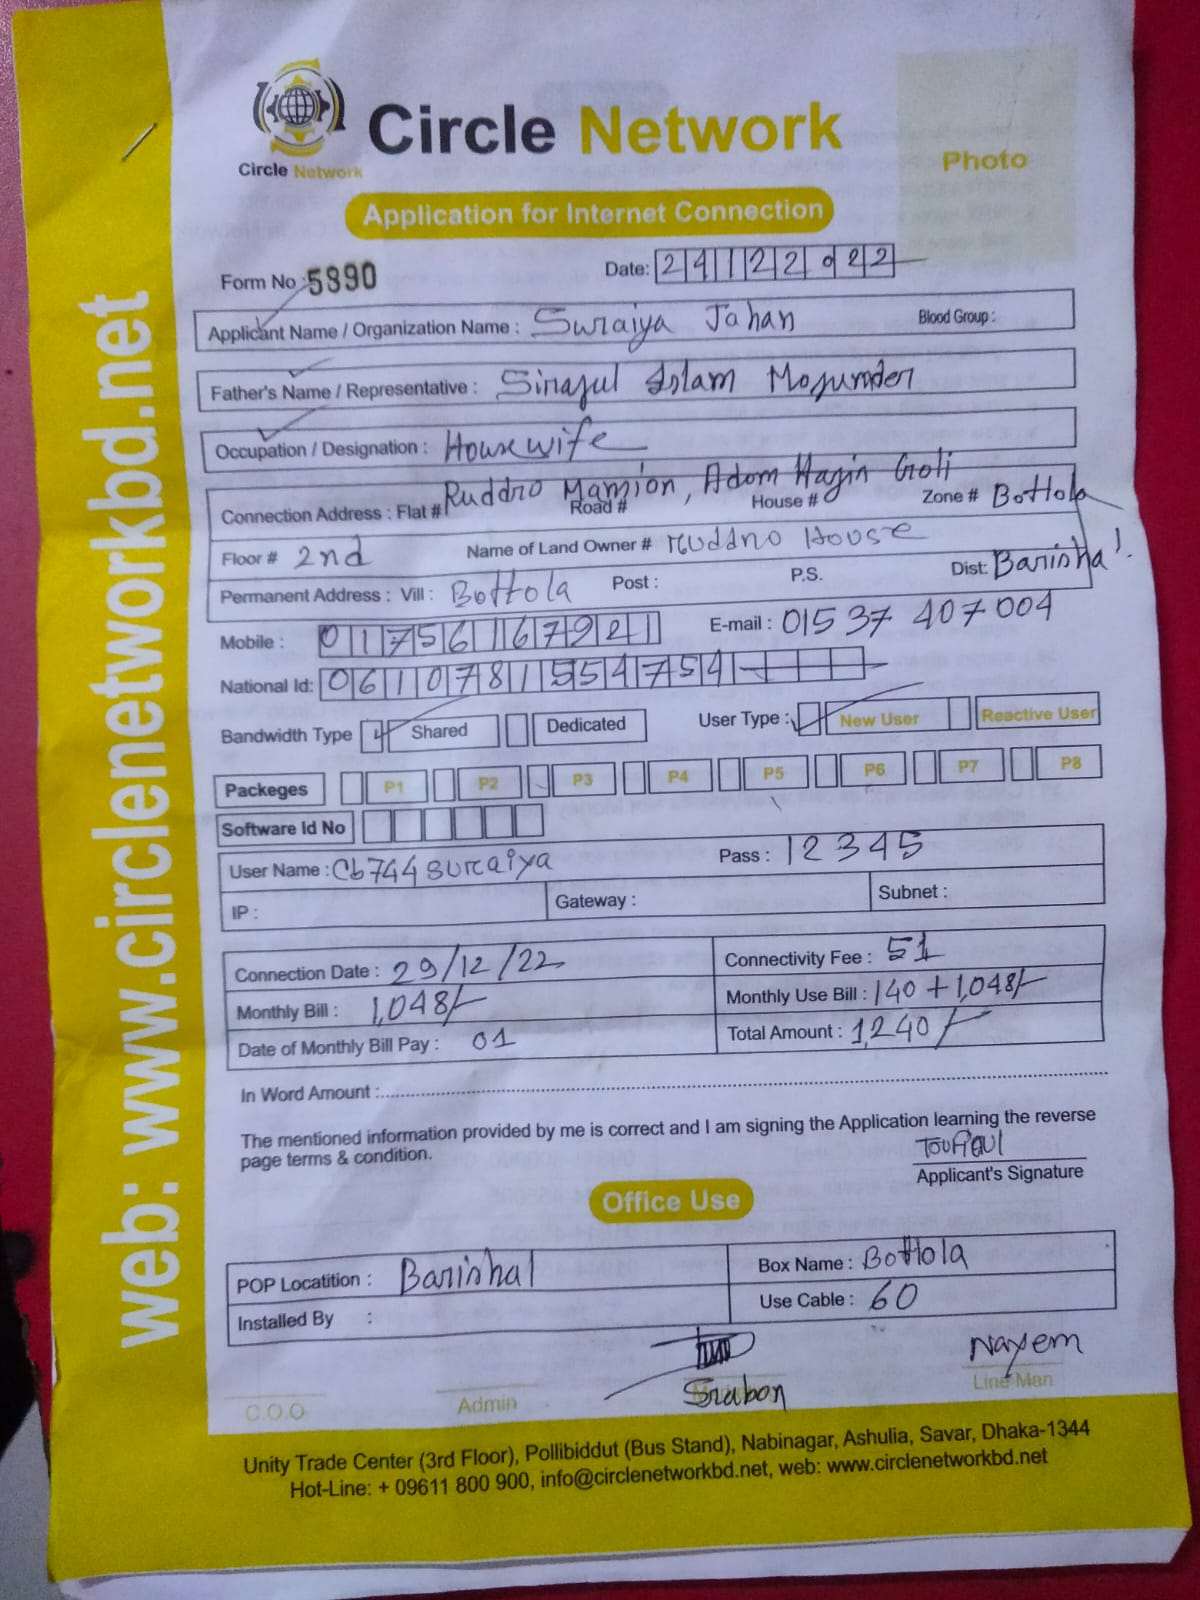 Circle Network
Circle Network
Photo
Application for Internet Connection
Form No : 5890
Date: 24122022
Applicant Name / Organization Name : Suraiya Jahan Blood Group :
Father's Name / Representative : Sirajul Islam Mojumder
Occupation / Designation : Housewife
Ruddro Mansion, Adom Hagin Goli
Connection Address : Flat # Road # House # Zone # Bottola
Floor # 2nd Name of Land Owner # Ruddro House
Permanent Address : Vill : Bottola Post : P.S. Dist: Barishal
Mobile : 01756167921 E-mail : 01537 407 004
National Id: 0610781554754
Bandwidth Type Shared Dedicated User Type : New User Reactive User
Packeges P1 P2 P3 P4 P5 P6 P7 P8
Software Id No
User Name : Cb744suraiya Pass : 12345
IP : Gateway : Subnet :
Connection Date : 29/12/22 Connectivity Fee : 51
Monthly Bill : 1,048/- Monthly Use Bill : 140 + 1,048/-
Date of Monthly Bill Pay : 01 Total Amount : 1,240/-
In Word Amount :
The mentioned information provided by me is correct and I am signing the Application learning the reverse
page terms & condition.
Applicant's Signature
Office Use
POP Locatition : Barishal Box Name : Bottola
Installed By : Use Cable : 60
Srabon
Nayem
C.O.O Admin Line Man
Unity Trade Center (3rd Floor), Pollibiddut (Bus Stand), Nabinagar, Ashulia, Savar, Dhaka-1344
Hot-Line: + 09611 800 900, info@circlenetworkbd.net, web: www.circlenetworkbd.net
web: www.circlenetworkbd.net